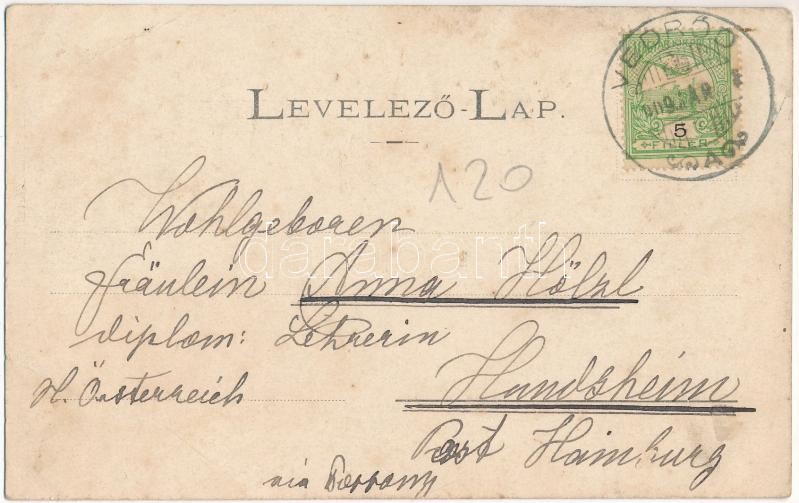 VEDRŐD
5
FILLÉR
LEVELEZŐ-LAP.
120
Wohlgeboren
darabanth
Fräulein Anna Hölzl
diplom: Lehrerin
N. Österreich Hundsheim
Post Hainburg
via Pozsony